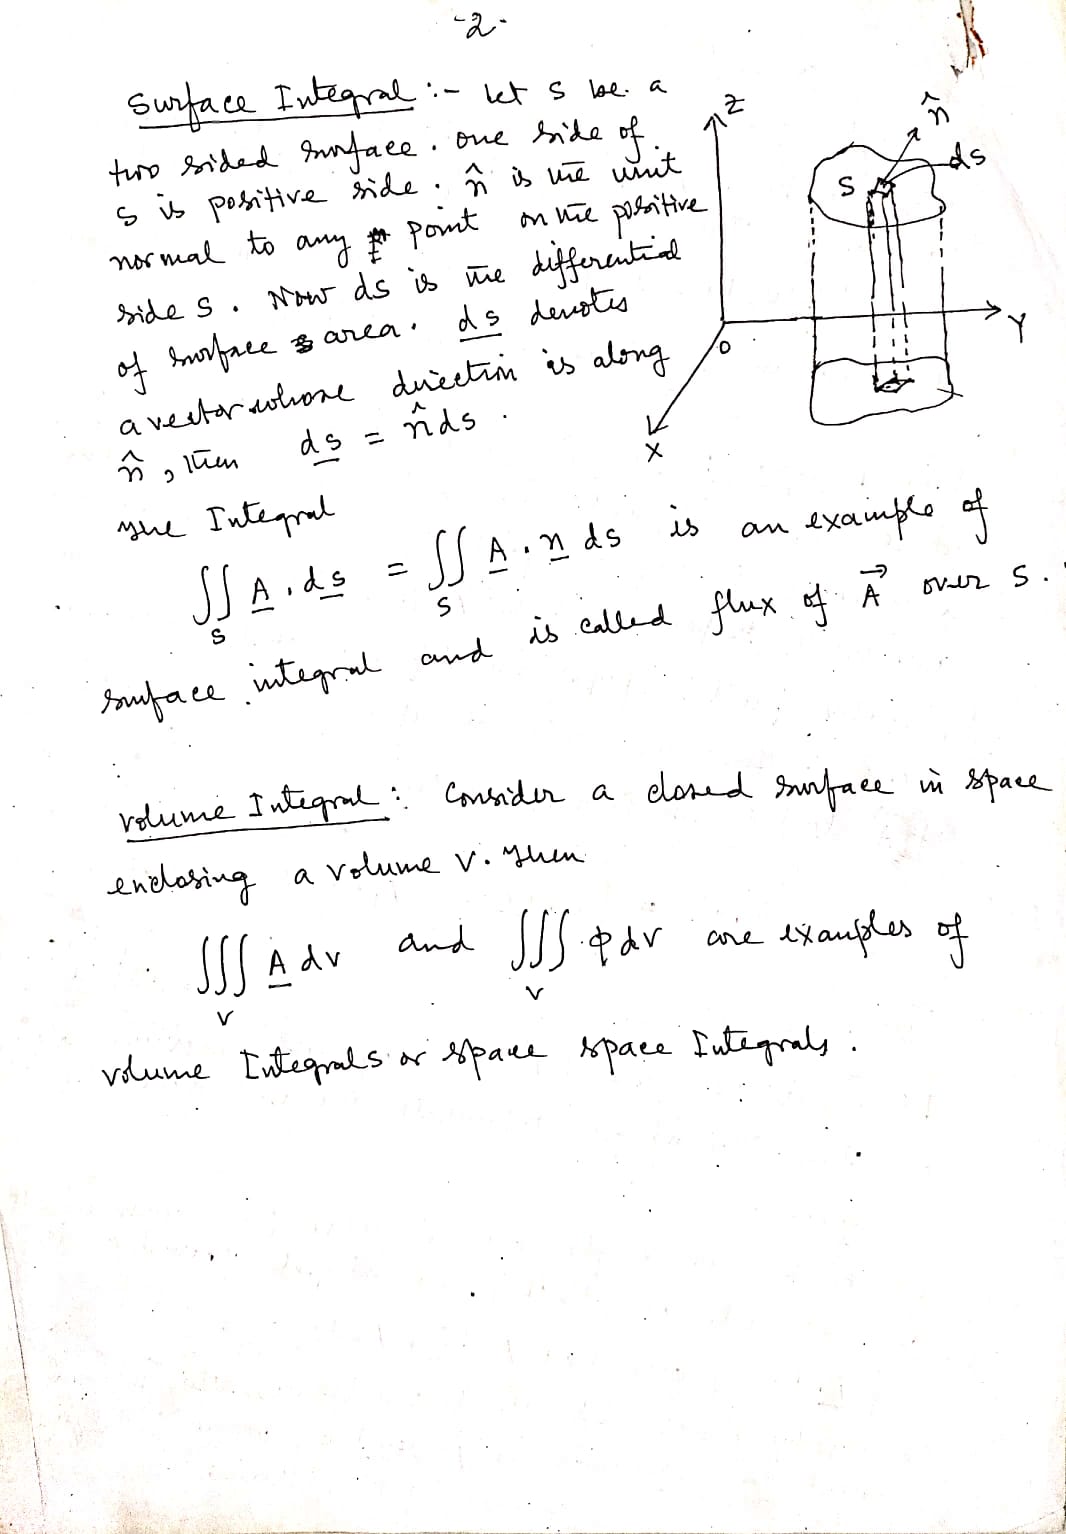 -2-
Surface Integral :- Let S be a
two sided surface. one side of
S is positive side. n̂ is the unit
normal to any point on the positive
side S. Now ds is the differential
of surface area. d̲s̲ denotes
a vector whose direction is along
n̂, then d̲s̲ = n̂ds.
The Integral
∬ A̲ . ds̲ = ∬ A̲ . n̲ ds is an example of
S S
surface integral and is called flux of A⃗ over S.
Z
n̂
ds
S
O
Y
X
Volume Integral : Consider a closed surface in space
enclosing a volume V. Then
∭ A̲ dv and ∭ φ dv are examples of
V V
volume Integrals or space space Integrals.